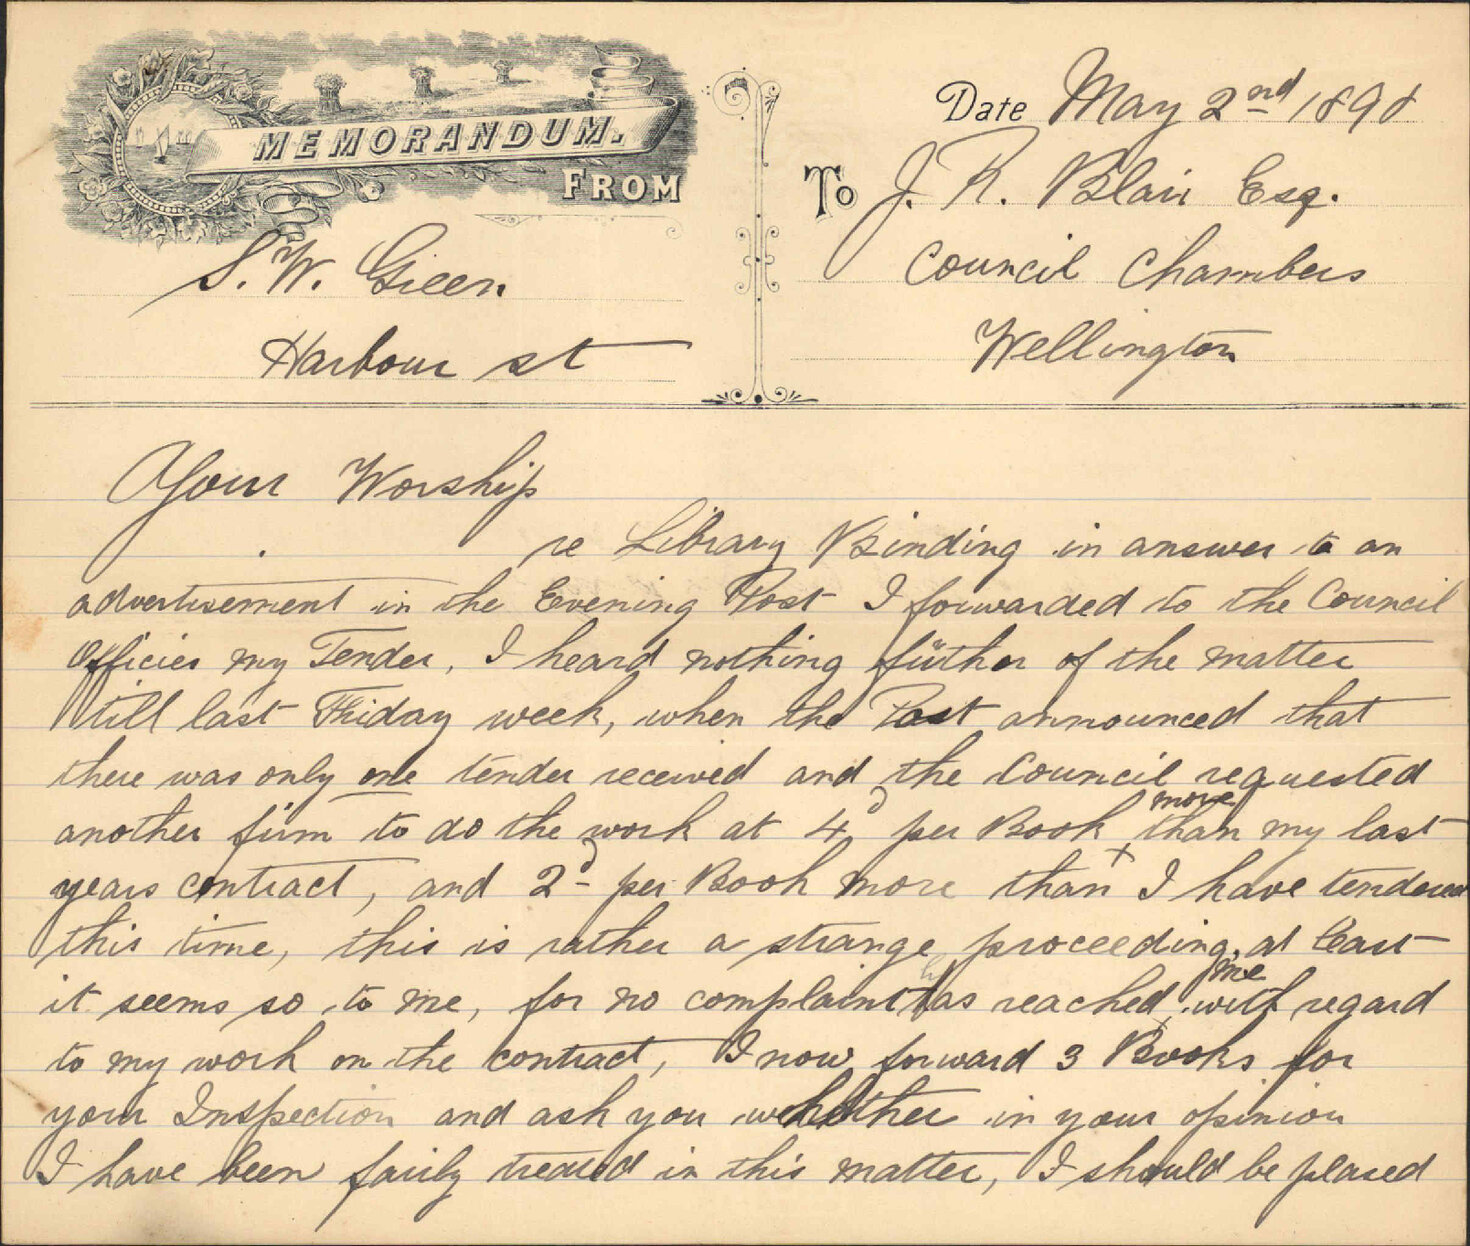 MEMORANDUM.
FROM
Date May 2nd 1898
To J. R. Blair Esq.
Council Chambers
Wellington
S. W. Green.
Harbour st
Your Worship
re Library Binding in answer to an
advertisement in the Evening Post I forwarded to the Council
Officies my Tender, I heard nothing further of the matter
till last Friday week, when the Post announced that
there was only one tender received and the Council requested
another firm to do the work at 4d per Book more than my last
years contract, and 2d per Book more than I have tendered
this time, this is rather a strange proceeding, at least
it seems so to me, for no complaint has reached me with regard
to my work on the contract, I now forward 3 Books for
your Inspection and ask you whether in your opinion
I have been fairly treated in this matter, I should be plased